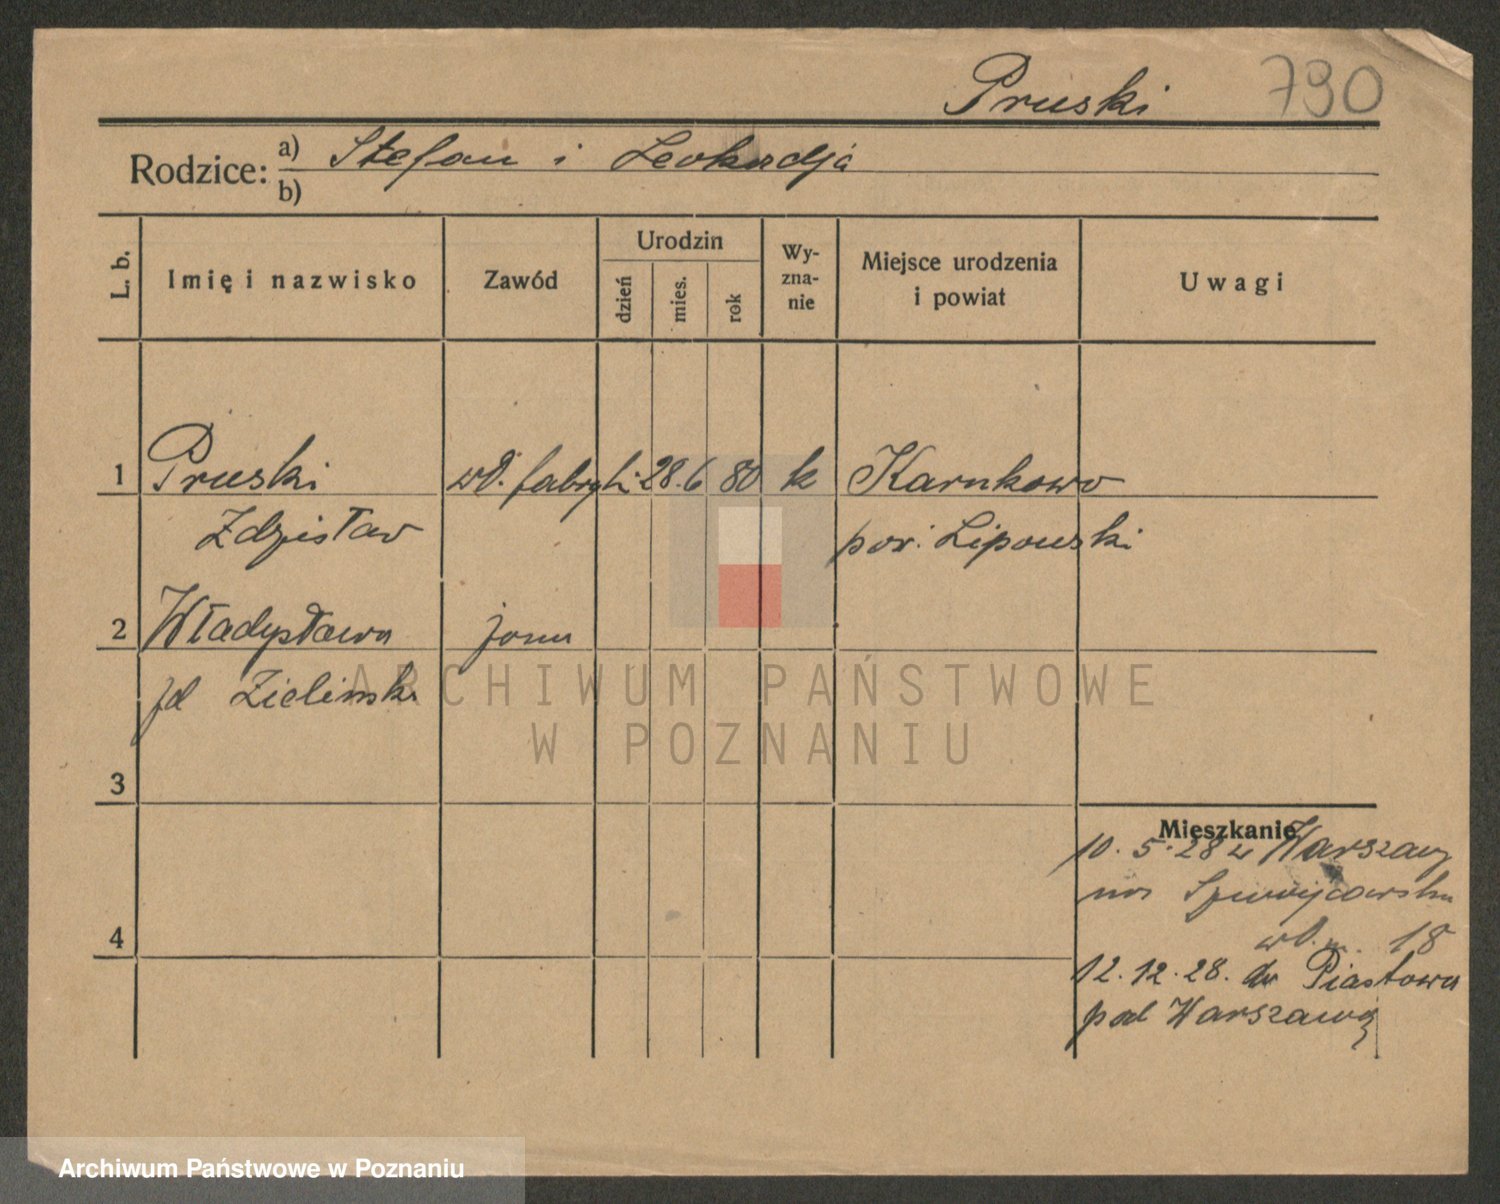 Pruski 790
Rodzice: a) Stefan i Leokadja
b)
L. b.
Imię i nazwisko
Zawód
Urodzin
dzień
mies.
rok
Wy-
zna-
nie
Miejsce urodzenia
i powiat
Uwagi
1 Pruski wł. fabryki 28. 6 80 k Karnkowo
Zdzisław pow. Lipowski
2 Władysława żona
zd Zielińsk.
3
4
Mieszkanie
10. 5. 28 z Warszawy
18
12. 12. 28. do Piastowa
pod Warszawą
ARCHIWUM PAŃSTWOWE
W POZNANIU
Archiwum Państwowe w Poznaniu